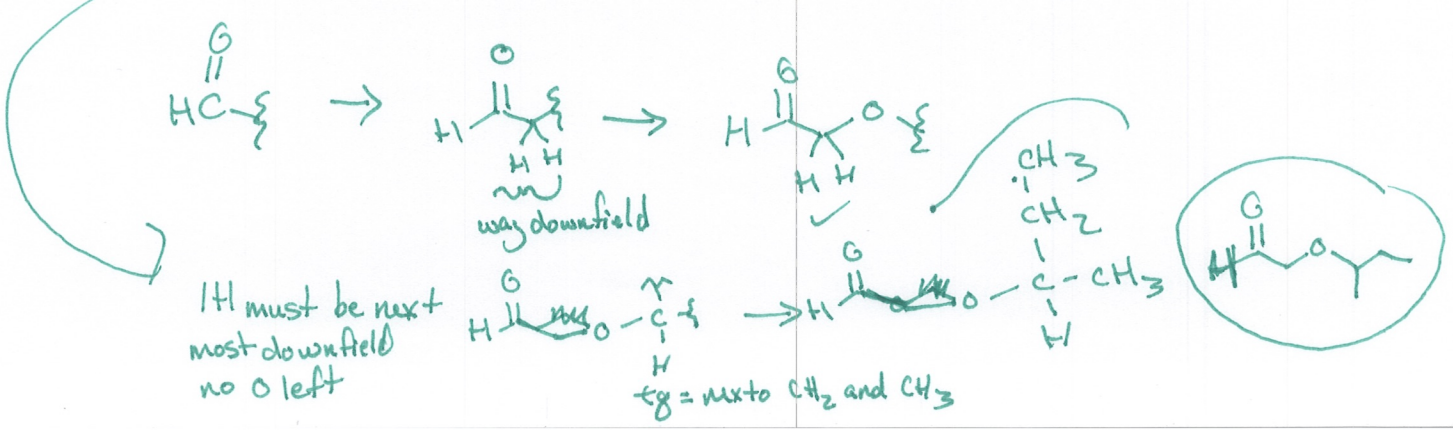 O
HC
→
O
H
H H
way downfield
→
O
H
O
H H
✓
1H must be next
most downfield
no O left
O
H
O - C
H
tq = nxt to CH2 and CH3
→
CH3
CH2
O
H
O - C - CH3
H
O
H
O